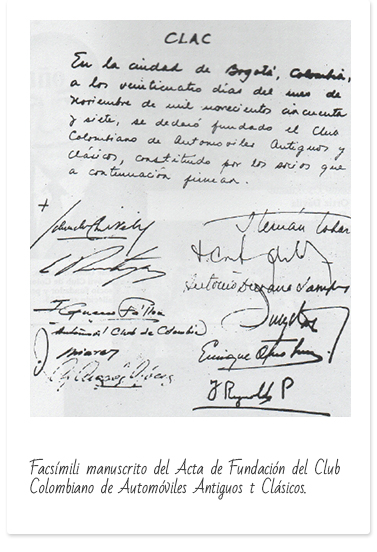 CLAC
En la ciudad de Bogotá, Colombia,
a los veinticuatro días del mes de
noviembre de mil novecientos cincuenta
y siete, se declaró fundado el Club
Colombiano de Automóviles Antiguos y
clásicos, constituído por los socios que
a continuación firman.
Hernán Tobar
Antonio
Automóvil Club de Colombia
Enrique
J Reynolds P
Facsímili manuscrito del Acta de Fundación del Club
Colombiano de Automóviles Antiguos t Clásicos.